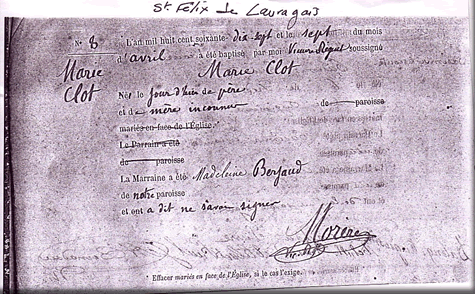 St Félix de Lauragais
No 8
Marie
Clot
L'an mil huit cent soixante dix-sept et le sept du mois
d'avril a été baptisé par moi Vicaire soussigné
Marie Clot
Né le jour d'hier de père
et de mère inconnus de paroisse
mariés en face de l'Église.
Le Parrain a été
de paroisse
La Marraine a été Madeleine
de notre paroisse
et ont a dit ne savoir signer
* Effacer mariés en face de l'Église, si le cas l'exige.